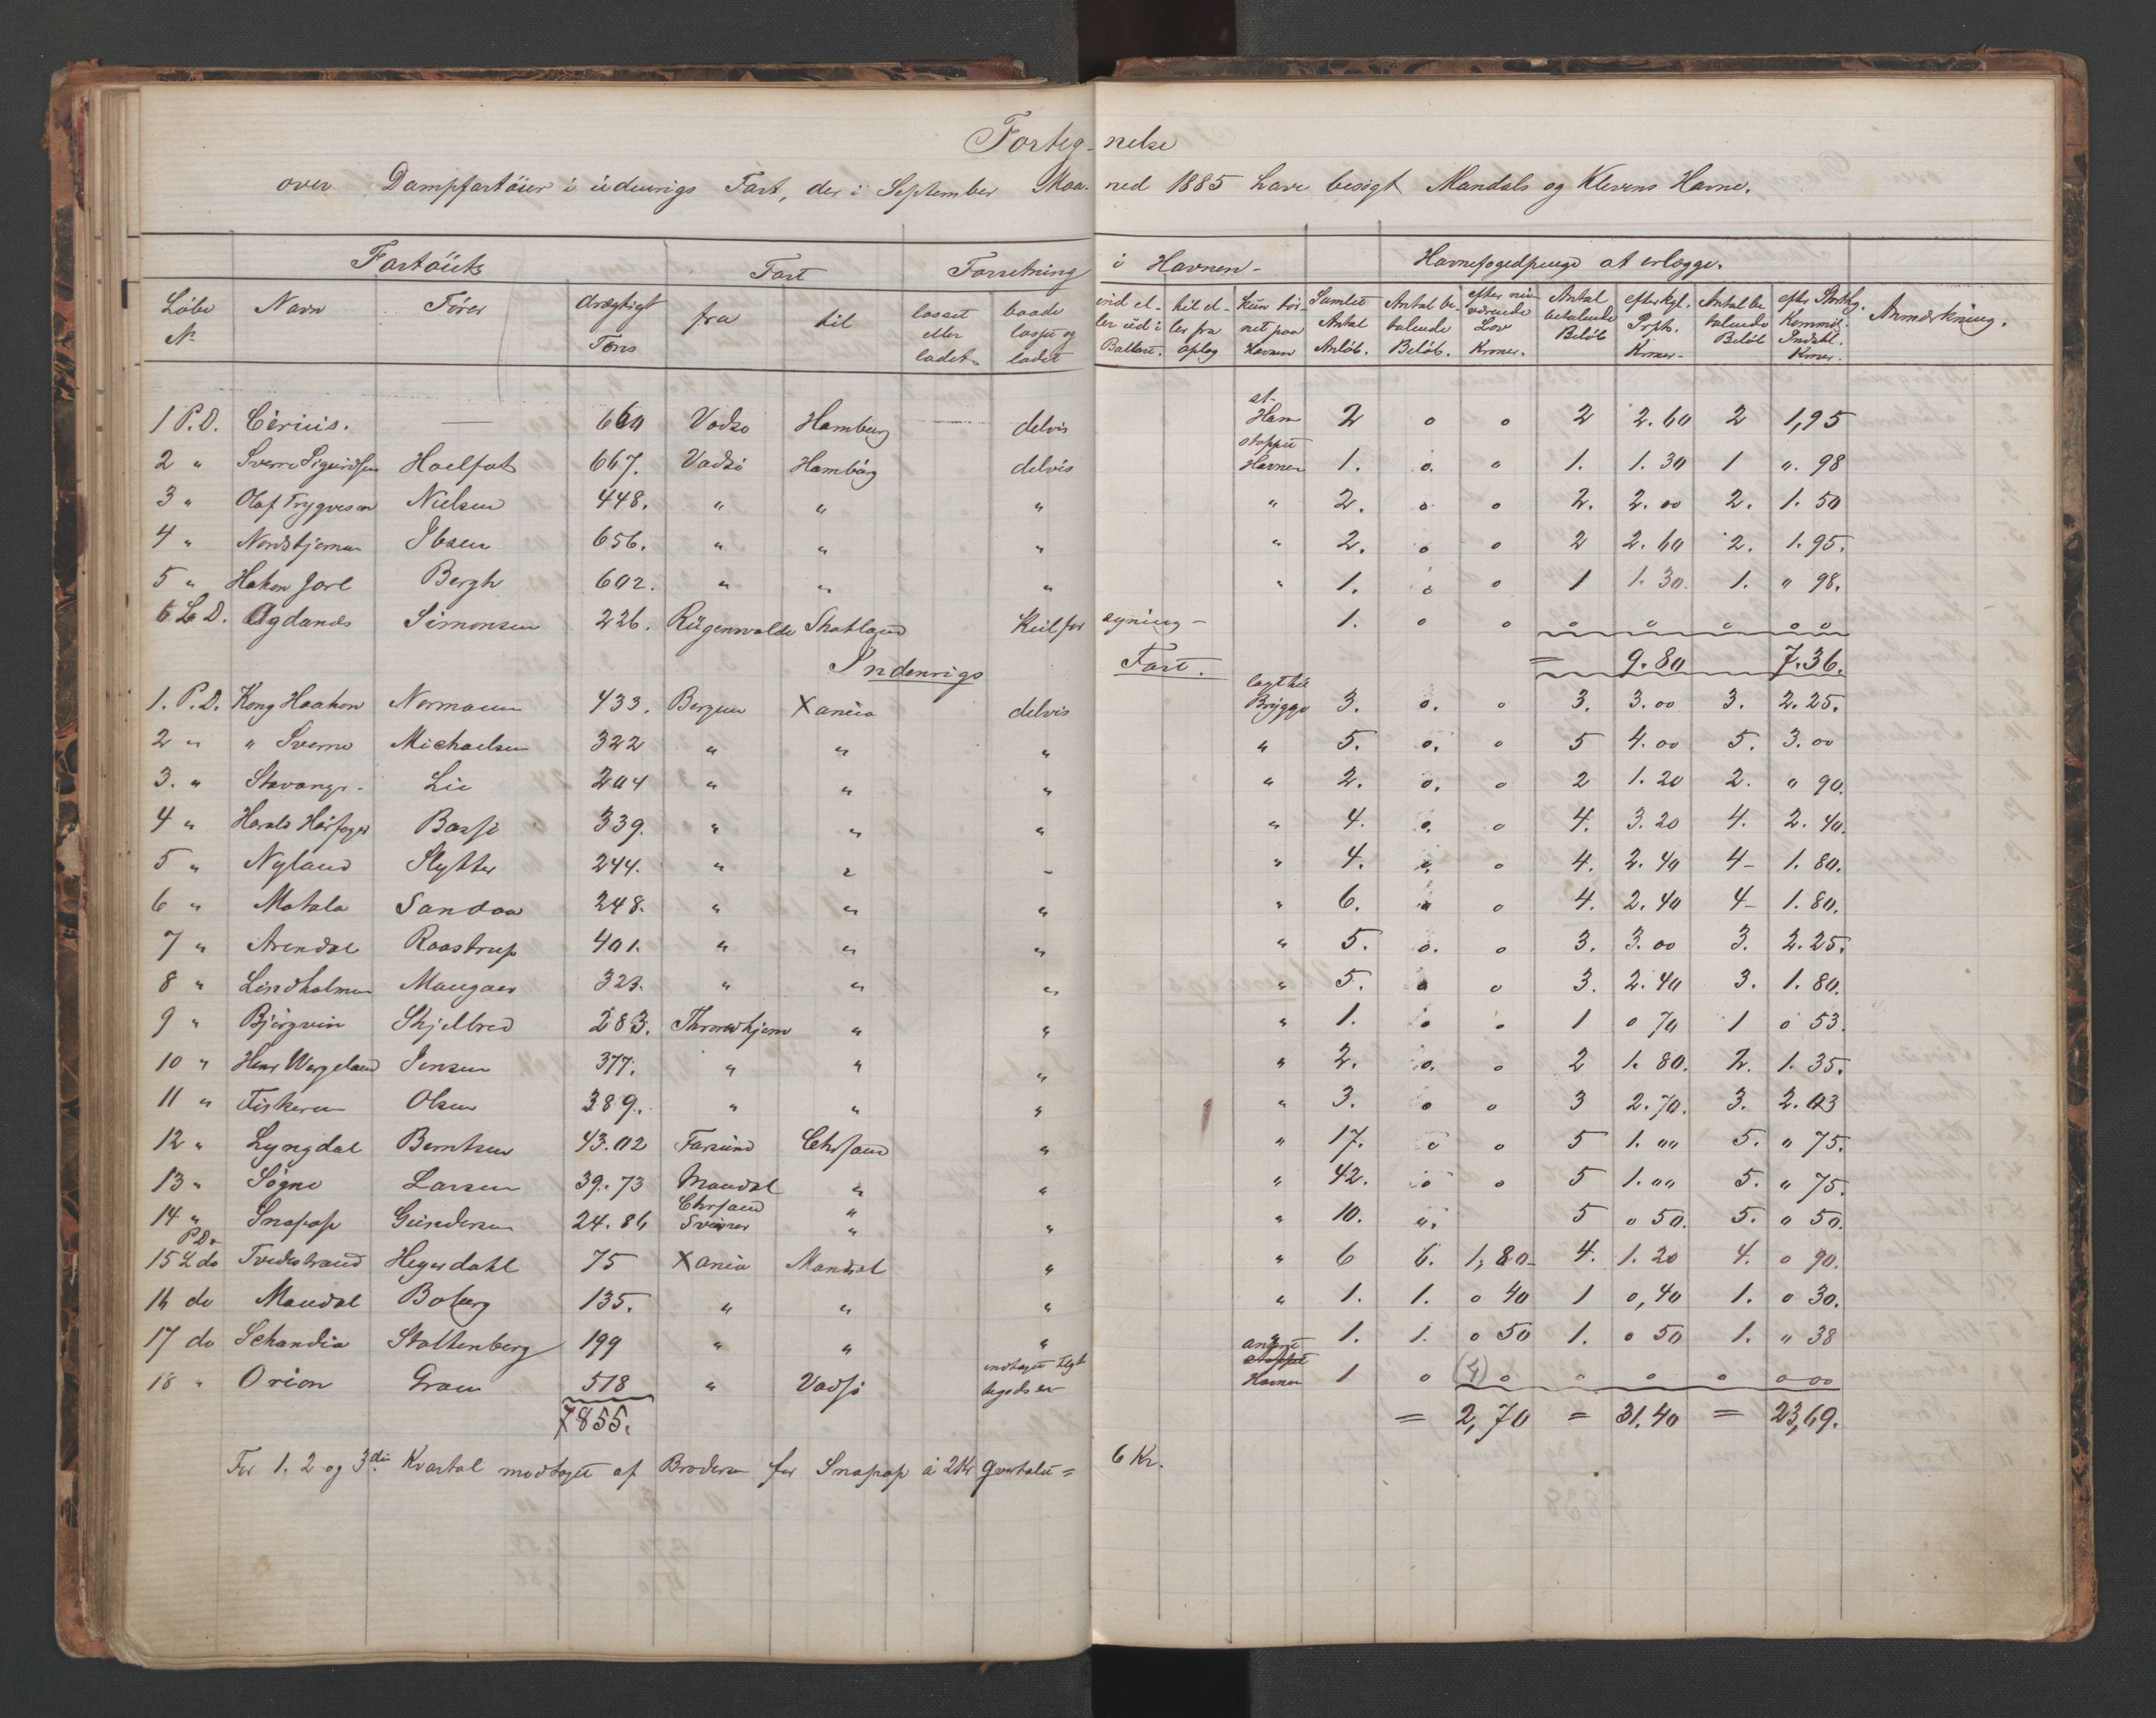 Forteg- nelse
over Dampfartöier i üdenrigs Fart, der i September Maa- ned 1885 have besögt Mandals og Klevens Havne.
Fartöiets Fart Forretning i Havnen- Havnefogedpenge at erlægge.
Löbe N. Navn Förer drægtigt Tons fra til losset eller ladet baade losset og ladet ind el- ler üd i Ballast. til el- ler fra oplag Kün tör- net paa Havnen Samlet Antal Anlöb. Antal be- talende Belöb. efter nü- værende Lov Kroner. Antal betalende Belöb efter kgl. Prph. Kroner- Antal be talende Belöb efter Sthrthg. Kommit. Indstl. Kroner. Anmærkning.
1 P.D. Cêriüs. — 660 Vadsö Hamburg delvis st. Havn 2 o o 2 2.60 2 1,95
2 " Sverre Sigurdssen Hoelfeldt 667. Vadsö Hamburg delvis stoppet Havnen 1. o. o 1. 1.30 1 ". 98
3 " Olaf Trygveson Nielsen 448. " " " " 2. o o 2. 2.00 2. 1.50
4 " Nordstjernen Ibsen 656. " " " " 2. o o 2 2.60 2. 1.95.
5 " Hakon Jarl Bergh 602. " " " " 1. o o 1 1.30. 1. " 98.
6 L.D. Agdanæs Simonsen 226. Rügenwalde Skotland Külfor syning- 1. o o o o o o o
= 9.80 7.36.
Indenrigs Fart.
1. P.D. Kong Haakon Normann 433. Bergen Xania delvis lagt til Brygge 3. o. o 3. 3.00 3. 2.25.
2 " " Sverre Michaelsen 322 " " " " 5. o. o 5 4.00 5. 3.00
3. " Stavanger. Lie 204 " " " " 2. o. o 2 1.20 2. " 90.
4 " Harald Hårfager Basse 339. " " " " 4. o. o 4. 3.20 4. 2.40.
5 " Nyland Slytter 244. " " " " 4. o o 4. 2.40 4- 1.80.
6 " Motala Sandaa 248. " " " " 6. o o 4. 2.40 4- 1.80.
7 " Arendal Raastrup 401. " " " " 5. o. o 3. 3.00 3. 2.25.
8 " Lindholmen Maugaer 323. " " " " 5. o o 3. 2.40 3. 1.80.
9 " Björgvin Skjelbred 283. Throndhjem " " " 1. o o 1 o 70 1 o 53.
10 " Henr Wergeland Jensen 377. " " " " 2. o. o 2 1.80. 2. 1.35.
11 " Fiskeren Olsen 389. " " " " 3. o o 3 2.70. 3. 2.03
12 " Lyngdal Berntsen 43.02 Farsund Chrsand " " 17. o o 5 1.00 5. " 75.
13 " Sögne Larsen 39.73 Mandal " " " 42. o o 5 1.00 5. " 75.
14 " Snapop Gündersen 24.86 Chrsand Svinör " " " " 10. o. 5 o 50. 5. o 50.
P.D.
15 L do Tvedestrand Heyerdahl 75 Xania Mandal " " 6 6. 1,80- 4. 1.20 4. o 90.
16 do Mandal Boberg 135. " " " " 1. 1. o 40 1 0,40 1. o 30.
17 do Schandia Stoltenberg 199 " " " " 1. 1. o 50 1. o 50 1. " 38
18 " Orion Gran 518 " Vadsö indtaget begods angaet stoppet Havnen 1 o (4) o o o o o 00
7855. = 2,70 = 31.40 = 23,69.
For 1. 2 og 3die Kvartal modtaget af Brodersen for Snapop á 2 Kr Qvartalet = 6 Kr.